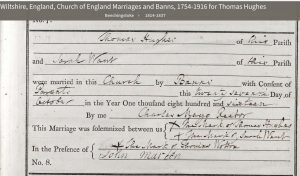 Wiltshire, England, Church of England Marriages and Banns, 1754-1916 for Thomas Hughes
Beechingstoke 1814-1837
Thomas Hughes of this Parish
and Sarah Want of this Parish
were married in this Church by Banns with Consent of
Parents this twenty seventh Day of
October in the Year One thousand eight hundred and sixteen
By me Charles Rector
This Marriage was solemnized between us X The Mark of Thomas Hughes
X The Mark of Sarah Want
In the Presence of X The Mark of Thomas
John
No. 8.